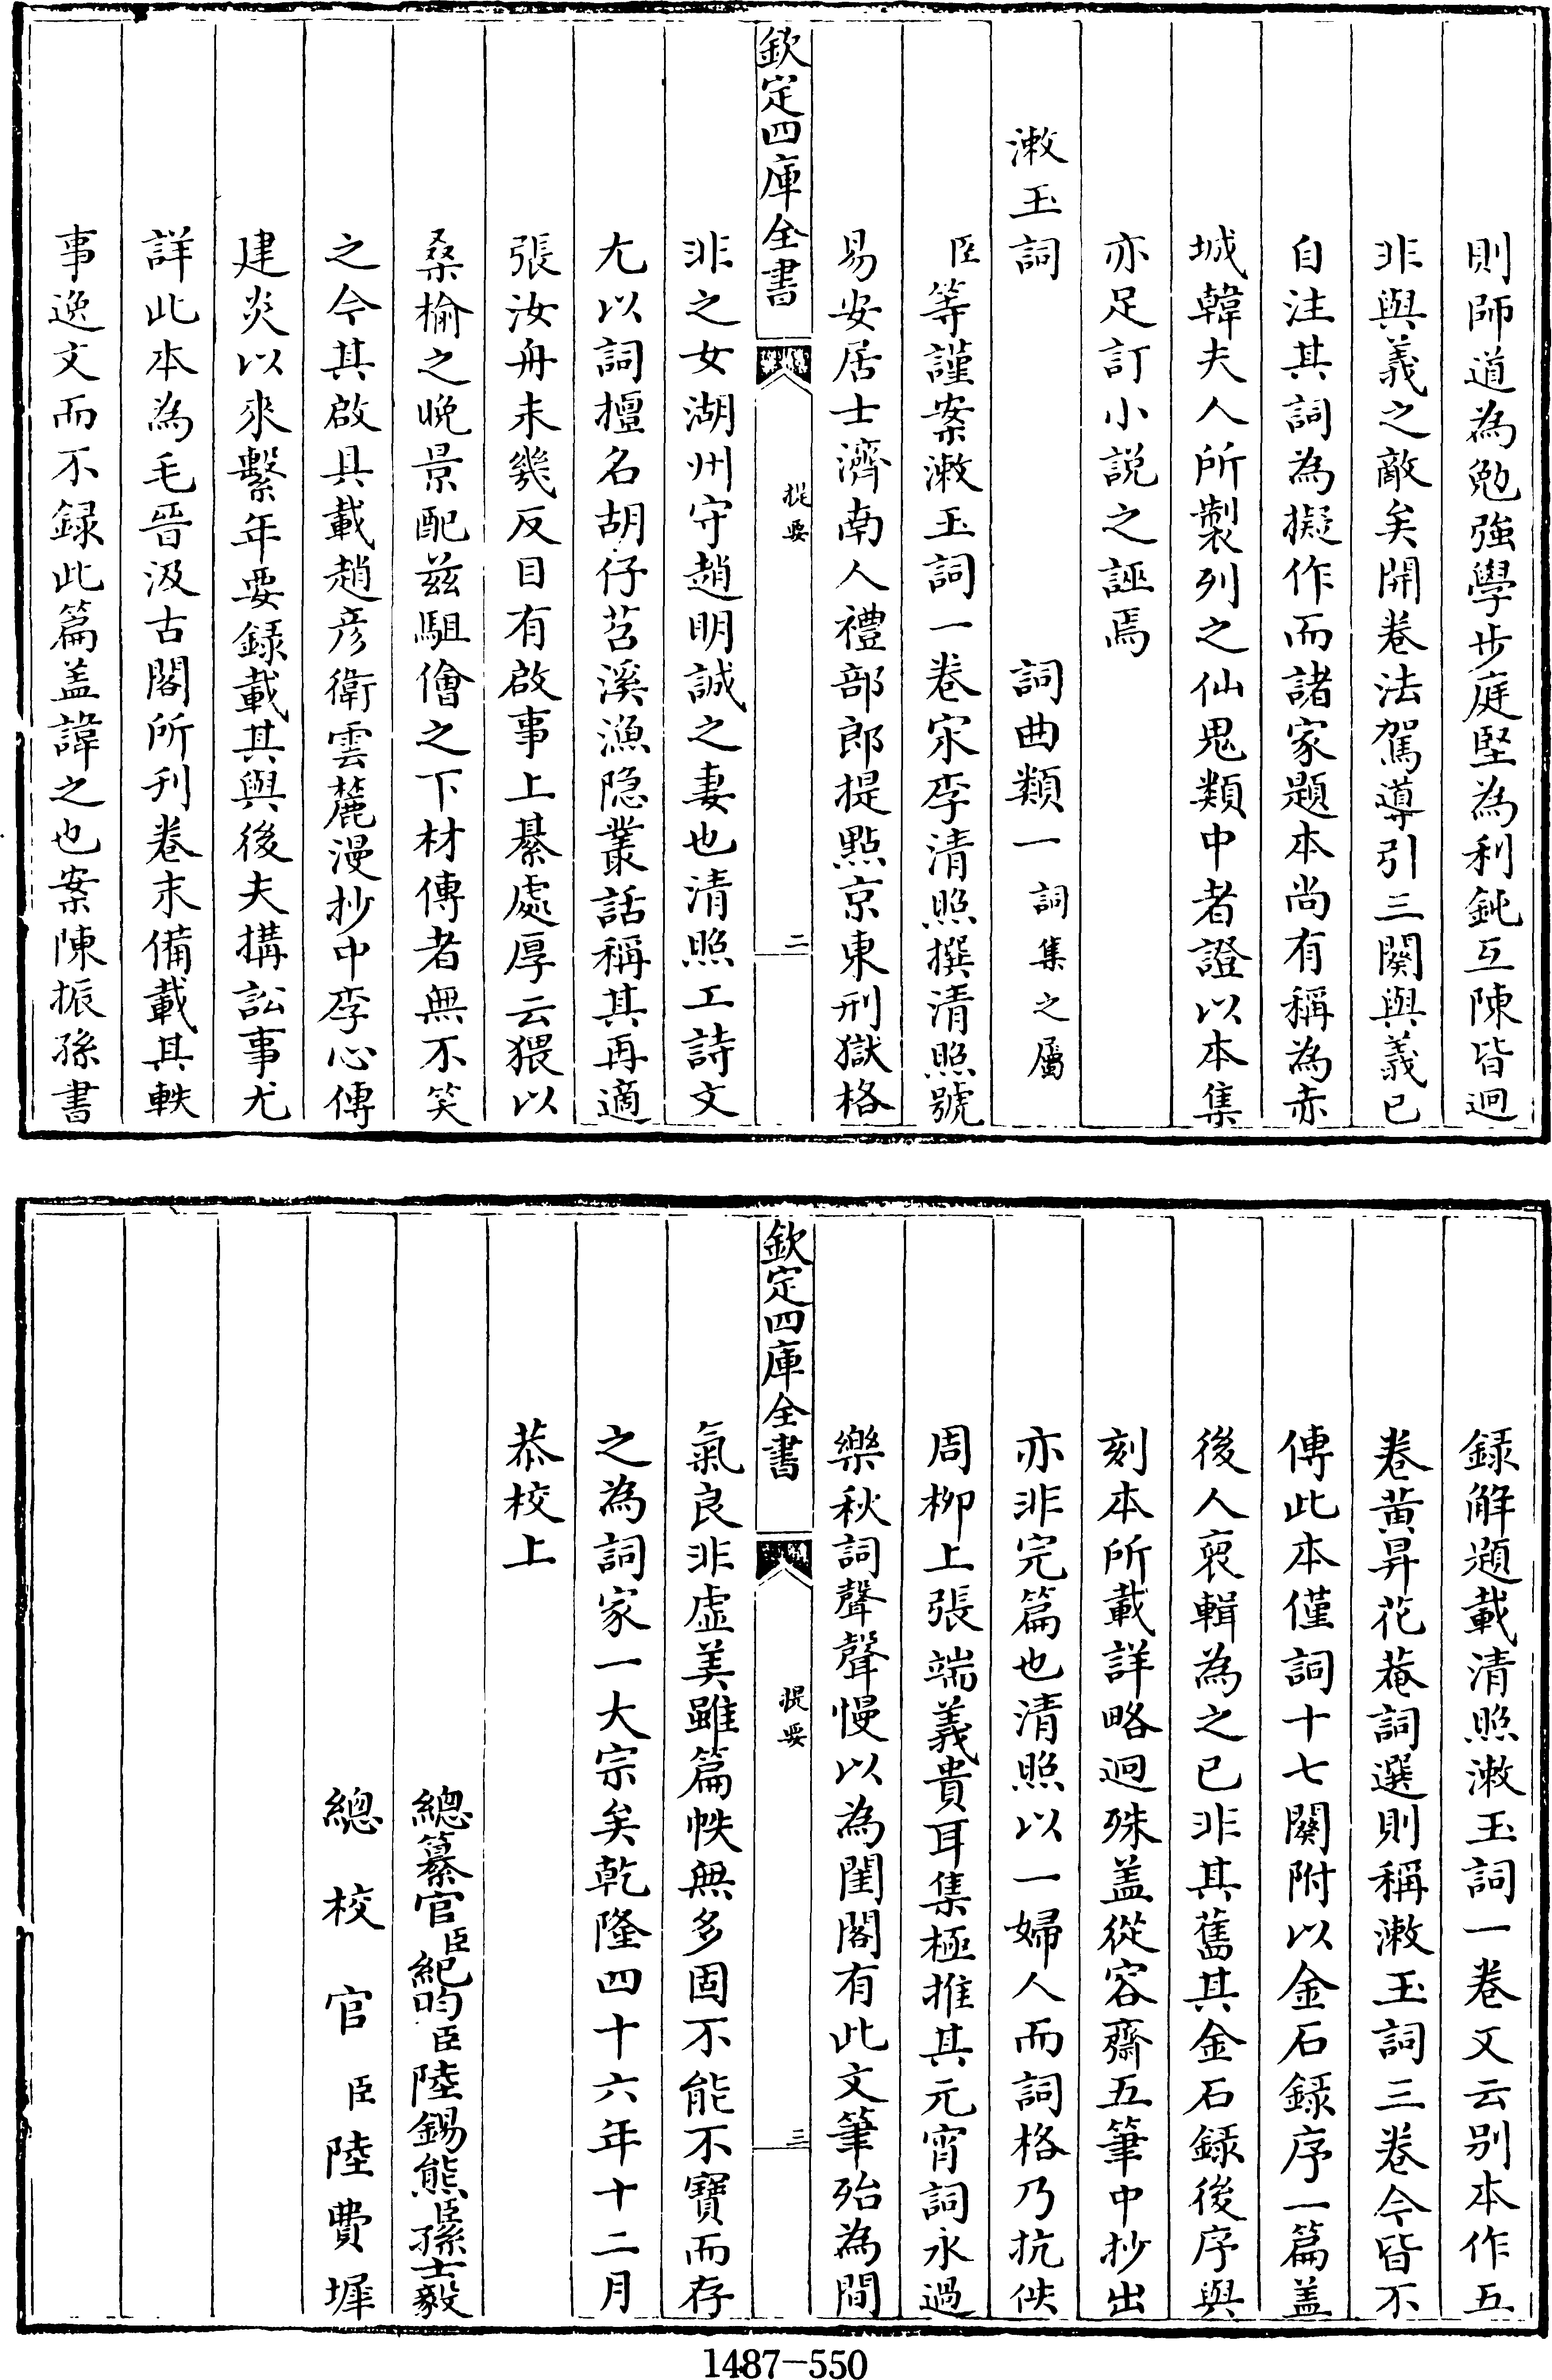 則師道為勉強學步庭堅為利鈍互陳皆迥
非與義之敵矣開卷法駕導引三闋與義已
自注其詞為擬作而諸家題本尚有稱為赤
城韓夫人所製列之仙鬼類中者證以本集
亦足訂小說之誣焉
漱玉詞 詞曲類一 詞集之屬
臣等謹案漱玉詞一卷宋李清照撰清照號
易安居士濟南人禮部郎提點京東刑獄格
欽定四庫全書 提要 二
非之女湖州守趙明誠之妻也清照工詩文
尤以詞擅名胡仔苕溪漁隐叢話稱其再適
張汝舟未幾反目有啟事上綦處厚云猥以
桑榆之晚景配兹駔儈之下材傳者無不笑
之今其啟具載趙彦衛雲麓漫抄中李心傳
建炎以來繫年要録載其與後夫搆訟事尤
詳此本為毛晉汲古閣所刊卷末備載其軼
事逸文而不録此篇盖諱之也案陳振孫書
録解題載清照漱玉詞一卷又云别本作五
卷黃昇花菴詞選則稱漱玉詞三卷今皆不
傳此本僅詞十七闋附以金石録序一篇盖
後人裒輯為之已非其舊其金石録後序與
刻本所載詳略迥殊盖從容齋五筆中抄出
亦非完篇也清照以一婦人而詞格乃抗佚
周柳上張端義貴耳集極推其元宵詞永遇
樂秋詞聲聲慢以為閨閣有此文筆殆為間
欽定四庫全書 提要 三
氣良非虚美雖篇帙無多固不能不寶而存
之為詞家一大宗矣乾隆四十六年十二月
恭校上
總纂官臣紀昀臣陸錫熊臣孫士毅
總校官臣陸費墀
1487-550